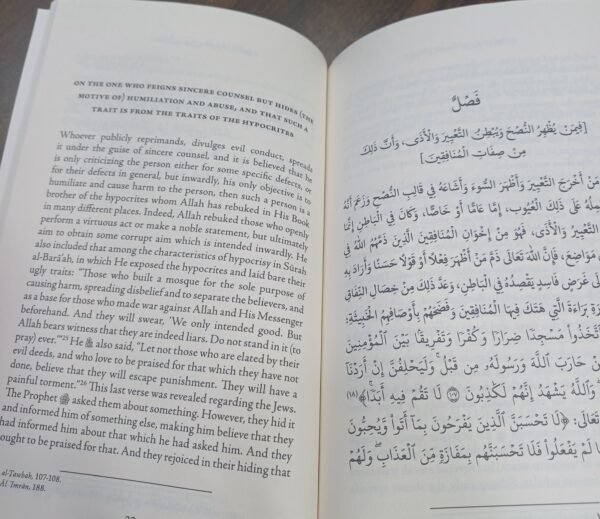 ON THE ONE WHO FEIGNS SINCERE COUNSEL BUT HIDES (THE
MOTIVE OF) HUMILIATION AND ABUSE, AND THAT SUCH A
TRAIT IS FROM THE TRAITS OF THE HYPOCRITES
Whoever publicly reprimands, divulges evil conduct, spreads
it under the guise of sincere counsel, and it is believed that he
is only criticizing the person either for some specific defects, or
for their defects in general, but inwardly, his only objective is to
humiliate and cause harm to the person, then such a person is a
brother of the hypocrites whom Allah has rebuked in His Book
in many different places. Indeed, Allah rebuked those who openly
perform a virtuous act or make a noble statement, but ultimately
aim to obtain some corrupt aim which is intended inwardly. He
also included that among the characteristics of hypocrisy in Sūrah
al-Barā'ah, in which He exposed the hypocrites and laid bare their
ugly traits: "Those who built a mosque for the sole purpose of
causing harm, spreading disbelief and to separate the believers, and
as a base for those who made war against Allah and His Messenger
beforehand. And they will swear, 'We only intended good. But
Allah bears witness that they are indeed liars. Do not stand in it (to
pray) ever."²⁵ He ﷻ also said, "Let not those who are elated by their
evil deeds, and who love to be praised for that which they have not
done, believe that they will escape punishment. They will have a
painful torment."²⁶ This last verse was revealed regarding the Jews.
The Prophet ﷺ asked them about something. However, they hid it
and informed him of something else, making him believe that they
had informed him about that which he had asked them. And they
ought to be praised for that. And they rejoiced in their hiding that
al-Tawbah, 107-108.
Āl 'Imrān, 188.
فَصْلٌ
[فِيمَنْ يُظْهِرُ النُّصْحَ وَيُبْطِنُ التَّعْيِيرَ وَالْأَذَى، وَأَنَّ ذَلِكَ
مِنْ صِفَاتِ الْمُنَافِقِينَ]
مَنْ أَخْرَجَ التَّعْيِيرَ وَأَظْهَرَ السُّوءَ وَأَشَاعَهُ فِي قَالِبِ النُّصْحِ وَزَعَمَ أَنَّهُ
عَلَى ذَلِكَ الْعُيُوبُ، إِمَّا عَامًّا أَوْ خَاصًّا، وَكَانَ فِي الْبَاطِنِ إِنَّمَا
التَّعْيِيرُ وَالْأَذَى، فَهُوَ مِنْ إِخْوَانِ الْمُنَافِقِينَ الَّذِينَ ذَمَّهُمُ اللَّهُ فِي
مَوَاضِعَ، فَإِنَّ اللَّهَ تَعَالَى ذَمَّ مَنْ أَظْهَرَ فِعْلًا أَوْ قَوْلًا حَسَنًا وَأَرَادَ بِهِ
غَرَضٍ فَاسِدٍ يَقْصِدُهُ فِي الْبَاطِنِ، وَعَدَّ ذَلِكَ مِنْ خِصَالِ النِّفَاقِ
بَرَاءَةَ الَّتِي هَتَكَ فِيهَا الْمُنَافِقِينَ وَفَضَحَهُمْ بِأَوْصَافِهِمُ الْخَبِيثَةِ:
اتَّخَذُوا مَسْجِدًا ضِرَارًا وَكُفْرًا وَتَفْرِيقًا بَيْنَ الْمُؤْمِنِينَ
مَنْ حَارَبَ اللَّهَ وَرَسُولَهُ مِنْ قَبْلُ وَلَيَحْلِفُنَّ إِنْ أَرَدْنَا
وَاللَّهُ يَشْهَدُ إِنَّهُمْ لَكَاذِبُونَ ﴿١٠٧﴾ لَا تَقُمْ فِيهِ أَبَدًا﴾(١٨)
تَعَالَى: ﴿لَا تَحْسَبَنَّ الَّذِينَ يَفْرَحُونَ بِمَا أَتَوْا وَيُحِبُّونَ
لَمْ يَفْعَلُوا فَلَا تَحْسَبَنَّهُمْ بِمَفَازَةٍ مِنَ الْعَذَابِ وَلَهُمْ